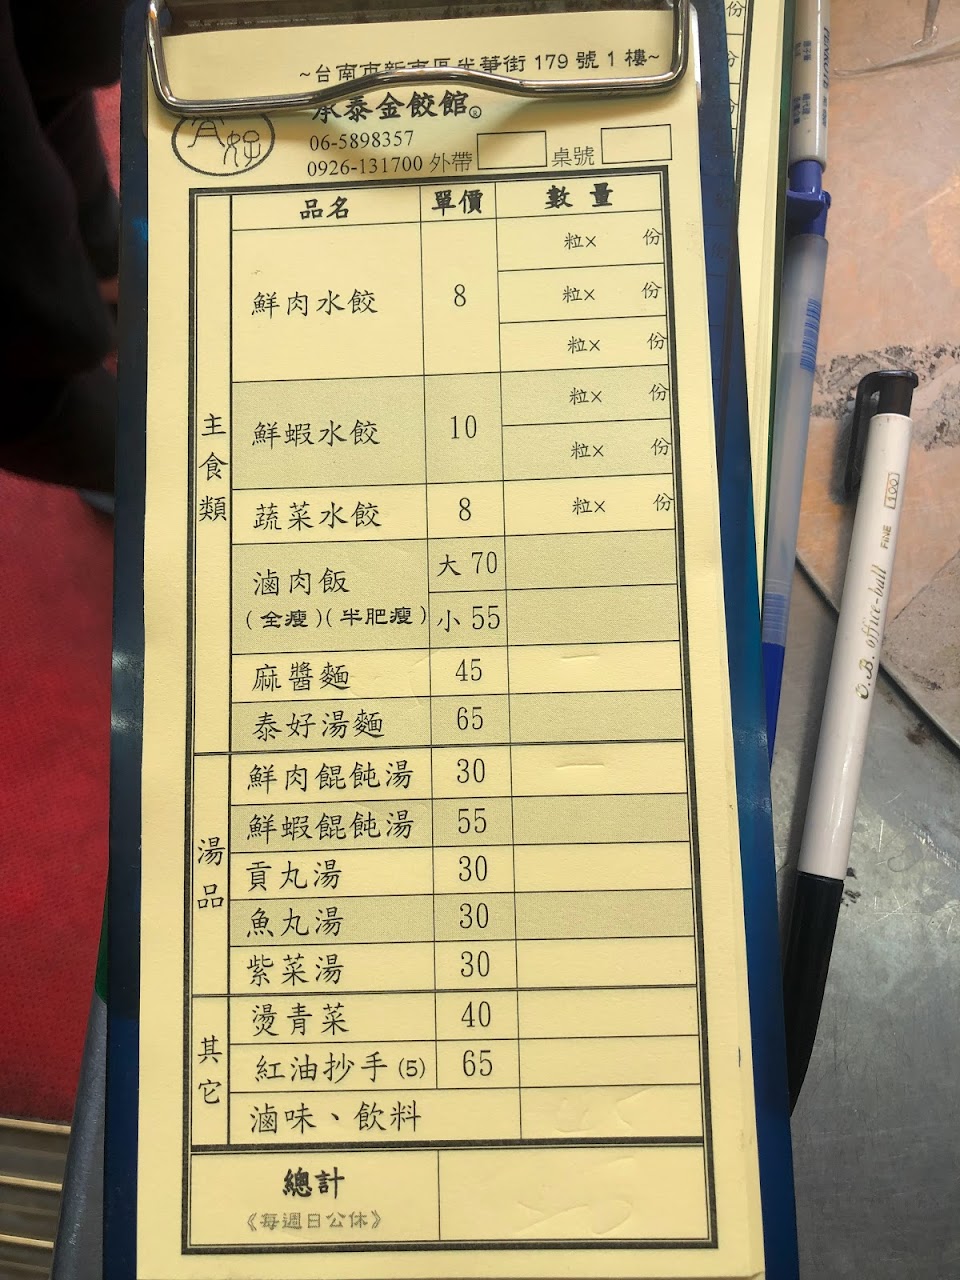 ~台南市新市區光華街 179 號 1 樓~
承泰金餃館®
06-5898357
0926-131700 外帶 桌號
品名 單價 數量
主食類
鮮肉水餃 8 粒× 份
粒× 份
粒× 份
鮮蝦水餃 10 粒× 份
粒× 份
蔬菜水餃 8 粒× 份
滷肉飯 大 70
(全瘦)(半肥瘦) 小 55
麻醬麵 45
泰好湯麵 65
湯品
鮮肉餛飩湯 30
鮮蝦餛飩湯 55
貢丸湯 30
魚丸湯 30
紫菜湯 30
其它
燙青菜 40
紅油抄手 (5) 65
滷味、飲料
總計
《每週日公休》
O.B. office-ball FINE 100